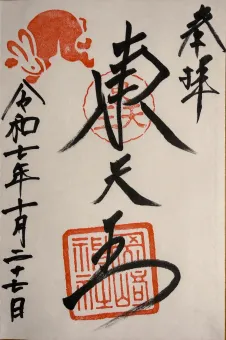 奉拝
東天王
岡崎神社
令和七年十月二十七日